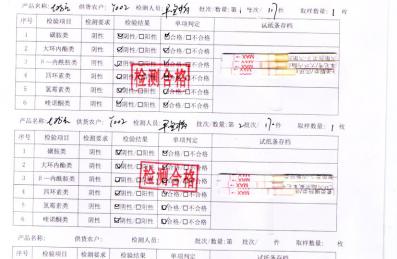 产品名称: 供货农户: Y002 检测人员: 批次/数量:第1批次/17件 取样数量: 1 枚
序号 检验项目 检测要求 检验结果 单项判定 试纸条存档
1 磺胺类 阴性 ☑阴性/□阳性 ☑合格/□不合格
2 大环内酯类 阴性 ☑阴性/□阳性 ☑合格/□不合格
3 β-内酰胺类 阴性 ☑阴性/□阳性 ☑合格/□不合格
4 四环素类 阴性 ☑阴性/□阳性 ☑合格/□不合格
5 氯霉素类 阴性 ☑阴性/□阳性 ☑合格/□不合格
6 喹诺酮类 阴性 ☑阴性/□阳性 ☑合格/□不合格
检测合格
MAX
MAX
产品名称: 供货农户: Y002 检测人员: 批次/数量:第2批次/17件 取样数量: 1 枚
序号 检验项目 检测要求 检验结果 单项判定 试纸条存档
1 磺胺类 阴性 ☑阴性/□阳性 ☑合格/□不合格
2 大环内酯类 阴性 ☑阴性/□阳性 ☑合格/□不合格
3 β-内酰胺类 阴性 ☑阴性/□阳性 ☑合格/□不合格
4 四环素类 阴性 ☑阴性/□阳性 ☑合格/□不合格
5 氯霉素类 阴性 ☑阴性/□阳性 ☑合格/□不合格
6 喹诺酮类 阴性 ☑阴性/□阳性 ☑合格/□不合格
检测合格
MAX
MAX
产品名称: 供货农户: 检测人员: 批次/数量:第 批次/ 件 取样数量: 枚
序号 检验项目 检测要求 检验结果 单项判定 试纸条存档